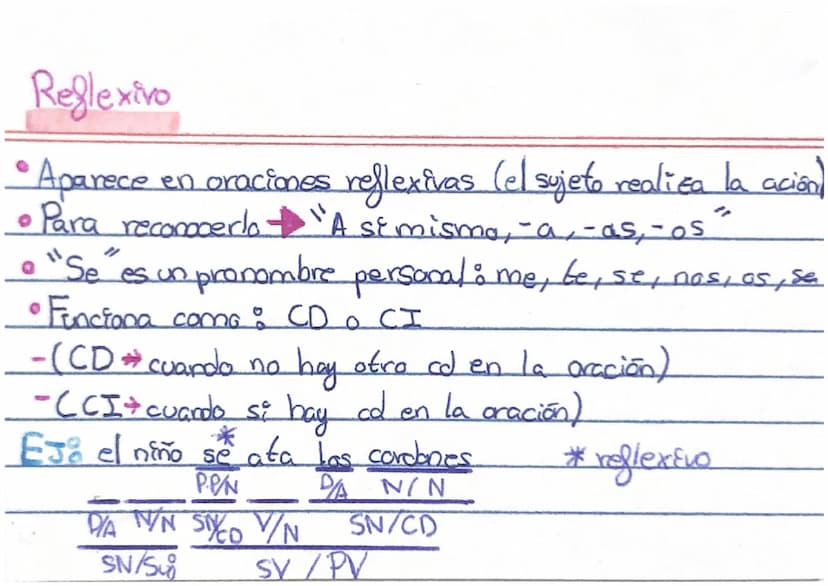 Reflexivo
• Aparece en oraciones reflexivas (el sujeto realiza la ación)
• Para reconocerlo → "A sí mismo, -a, -as, -os"
• "Se" es un pronombre personal: me, te, se, nos, os, se
• Funciona como: CD o CI
-(CD → cuando no hay otro cd en la oración)
-(CI → cuando si hay cd en la oración)
EJ: el niño se* ata los cordones * reflexivo
P.P/N D/A N/N
D/A N/N SN/CD V/N SN/CD
SN/Suj SV/PV